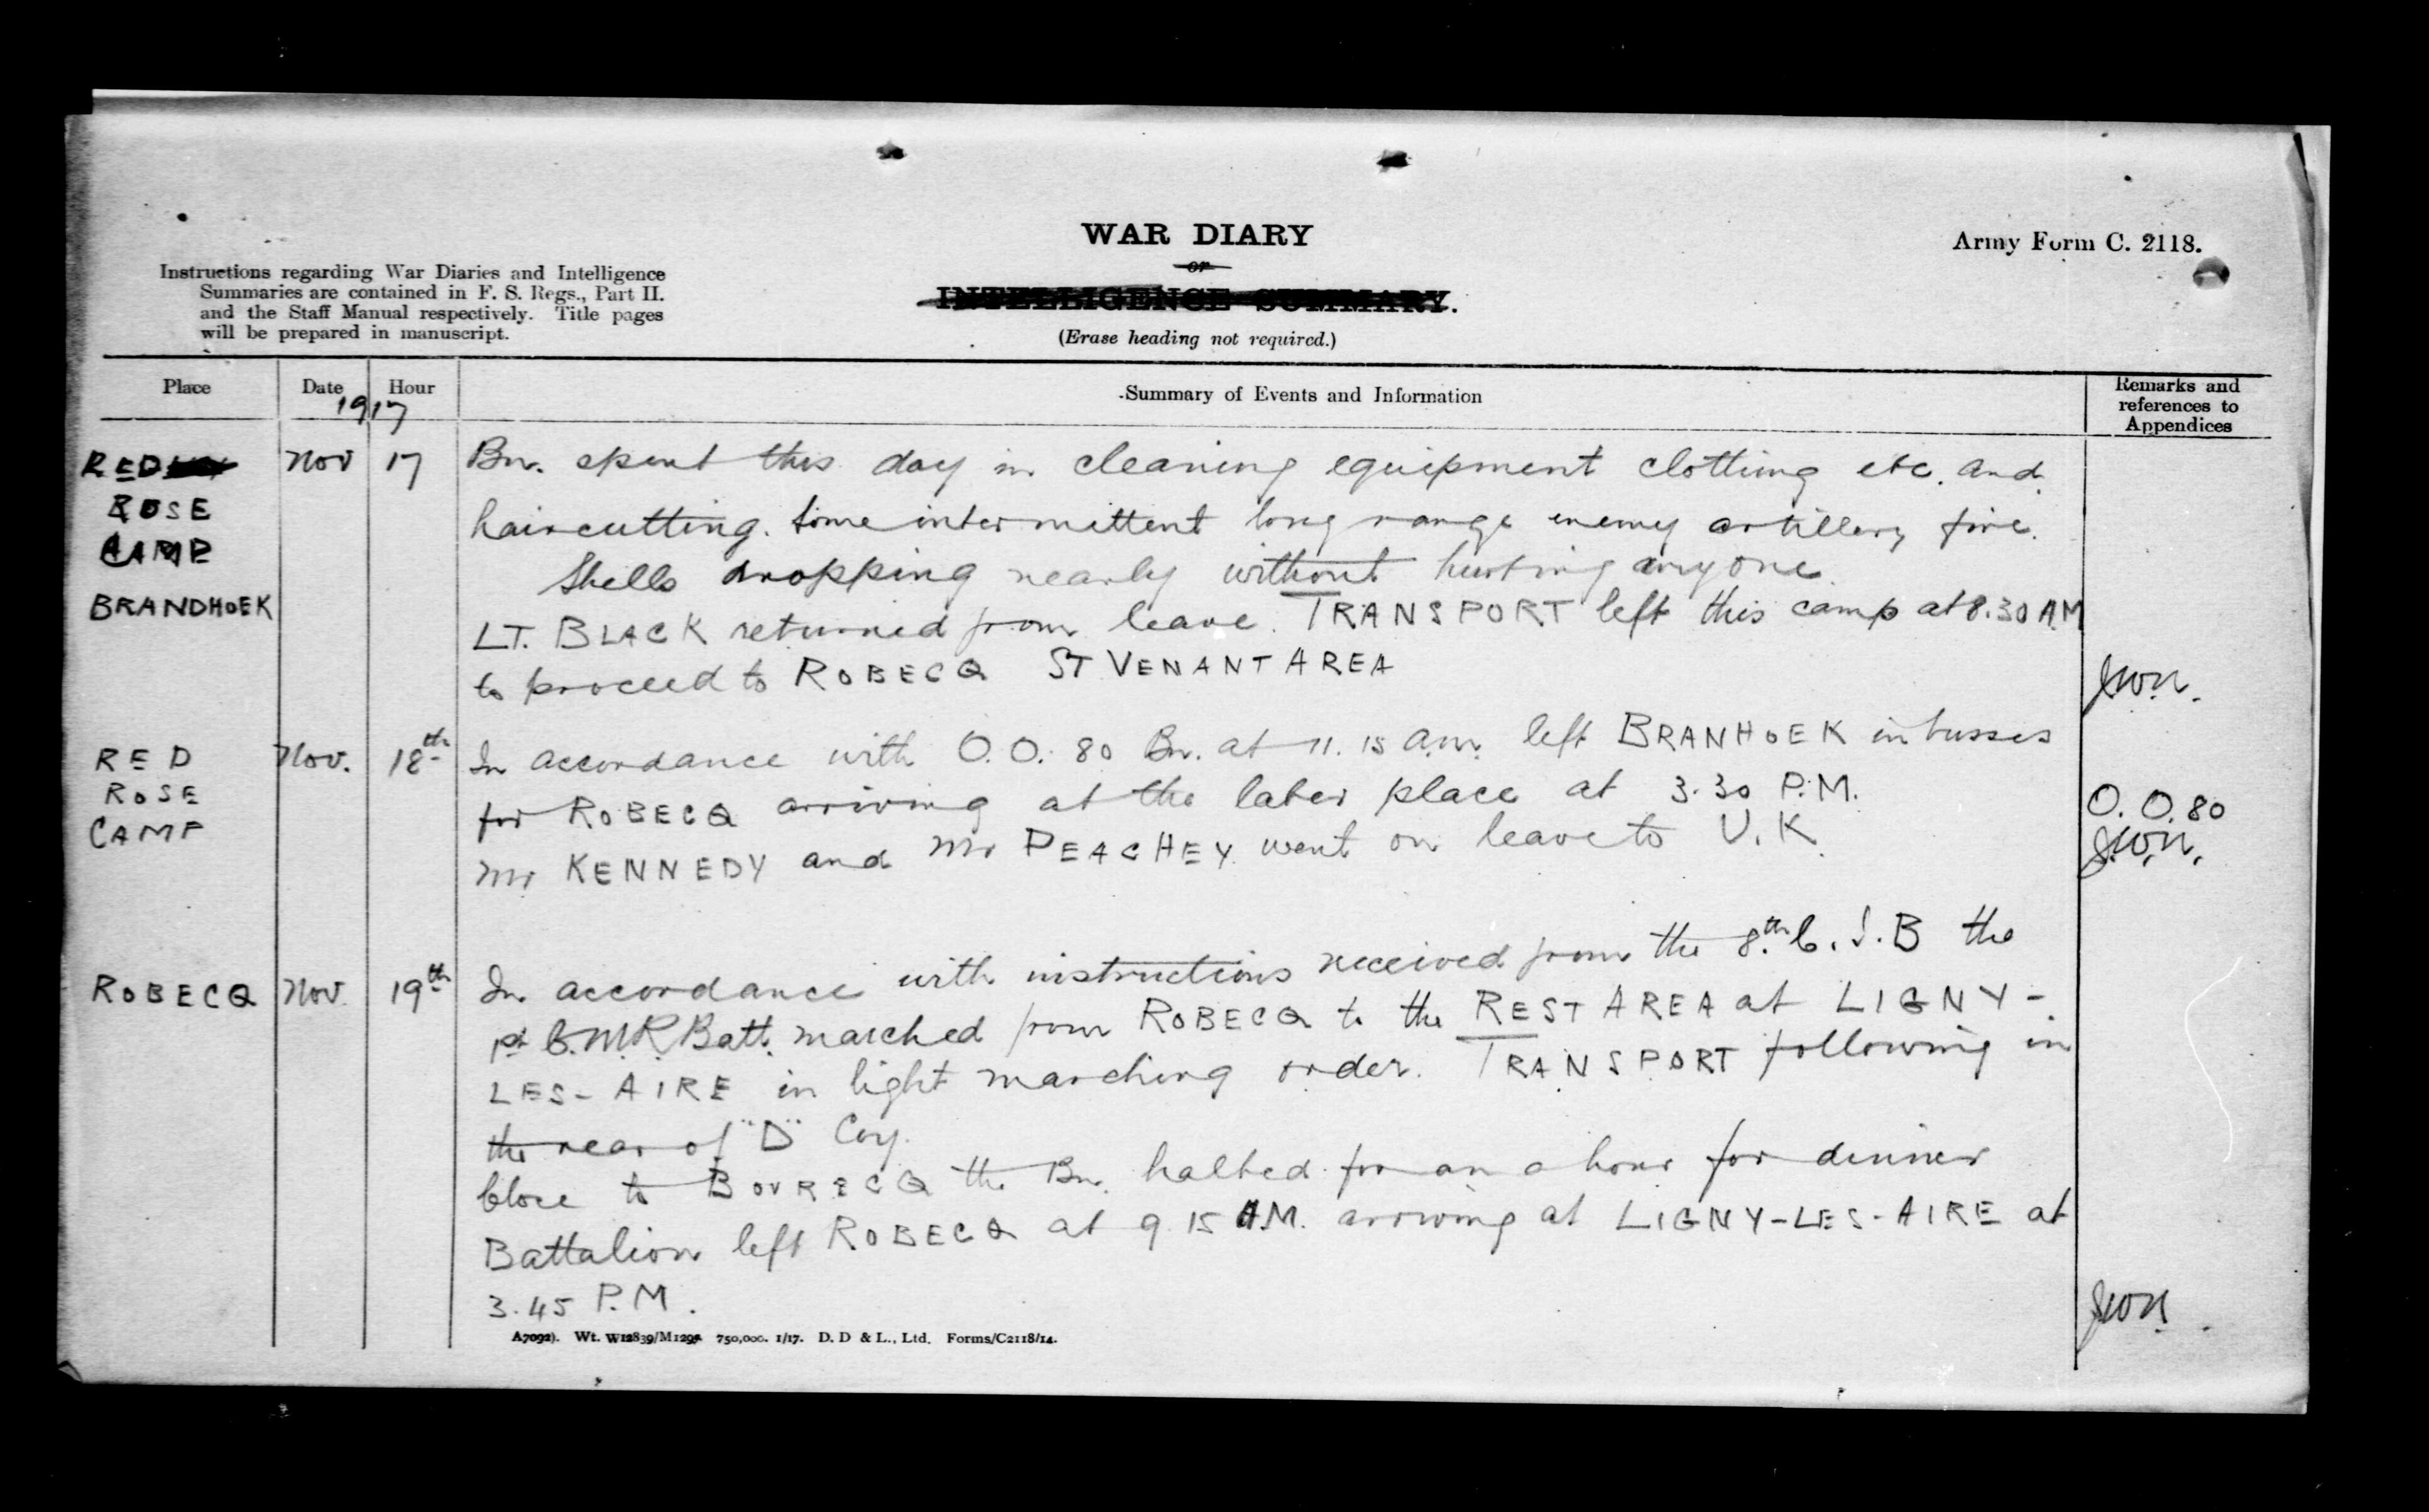 WAR DIARY
or
INTELLIGENCE SUMMARY.
(Erase heading not required.)
Army Form C. 2118.
Instructions regarding War Diaries and Intelligence
Summaries are contained in F. S. Regs., Part II.
and the Staff Manual respectively. Title pages
will be prepared in manuscript.
Place Date Hour Summary of Events and Information Remarks and references to Appendices
1917
RED Nov 17 Bn. spent this day in cleaning equipment clothing etc. and
ROSE haircutting. Some intermittent long range enemy artillery fire.
CAMP Shells dropping nearly without hurting anyone.
BRANDHOEK LT. BLACK returned from leave. TRANSPORT left this camp at 8.30 AM
to proceed to ROBECQ ST VENANT AREA
RED Nov. 18th In accordance with O.O. 80 Bn. at 11.15 a.m. left BRANHOEK in busses
ROSE for ROBECQ arriving at the later place at 3.30 P.M. O.O. 80
CAMP Mr KENNEDY and Mr PEACHEY went on leave to U.K.
ROBECQ Nov. 19th In accordance with instructions received from the 8th C.I.B the
1st C.M.R. Batt. marched from ROBECQ to the REST AREA at LIGNY-
LES-AIRE in light marching order. TRANSPORT following in
the rear of "D" Coy.
Close to BOURECQ the Bn. halted for an a hour for dinner
Battalion left ROBECQ at 9.15 A.M. arriving at LIGNY-LES-AIRE at
3.45 P.M.
A7092). Wt. W12839/M1295 750,000. 1/17. D. D & L., Ltd. Forms/C2118/14.